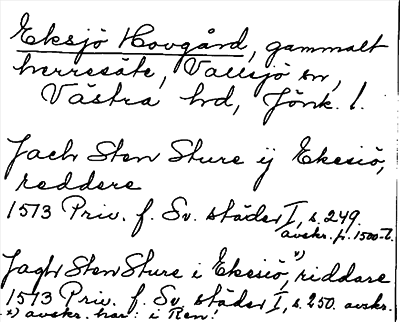 Eksjö Hovgård, gammalt
herresäte, Vallsjö sn,
Västra hd, Jönk. l.
Jach Sten Sture ij Ekesiö,
reddere
1513 Priv. f. Sv. städer I, s. 249.
avskr. fr. 1500-t.
Jagh Sten Sture i Ekesiö,*) riddare
1513 Priv. f. Sv. städer I, s. 250. avskr.
*) avskr. har: i Ren!